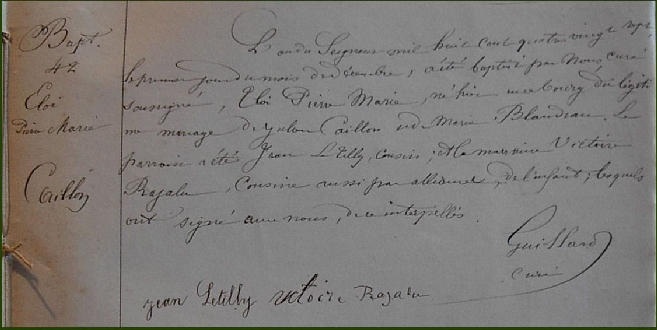 Bapt.
42
Eloi
Pierre Marie
Caillon
L'an du Seigneur mil huit cent quatre vingt sept
le premier jour du mois de décembre, a été baptisé par Nous curé
soussigné, Eloi Pierre Marie, né hier en ce bourg du légiti
me mariage de Caillon et de Marie Blandeau. Le
parrain a été Jean Letilly, cousin; et la marraine Victoire
Ragalu, cousine aussi par alliance, de l'enfant; lesquels
ont signé avec nous, de ce interpellés.
Guillard
curé
jean Letilly victoire Ragalu